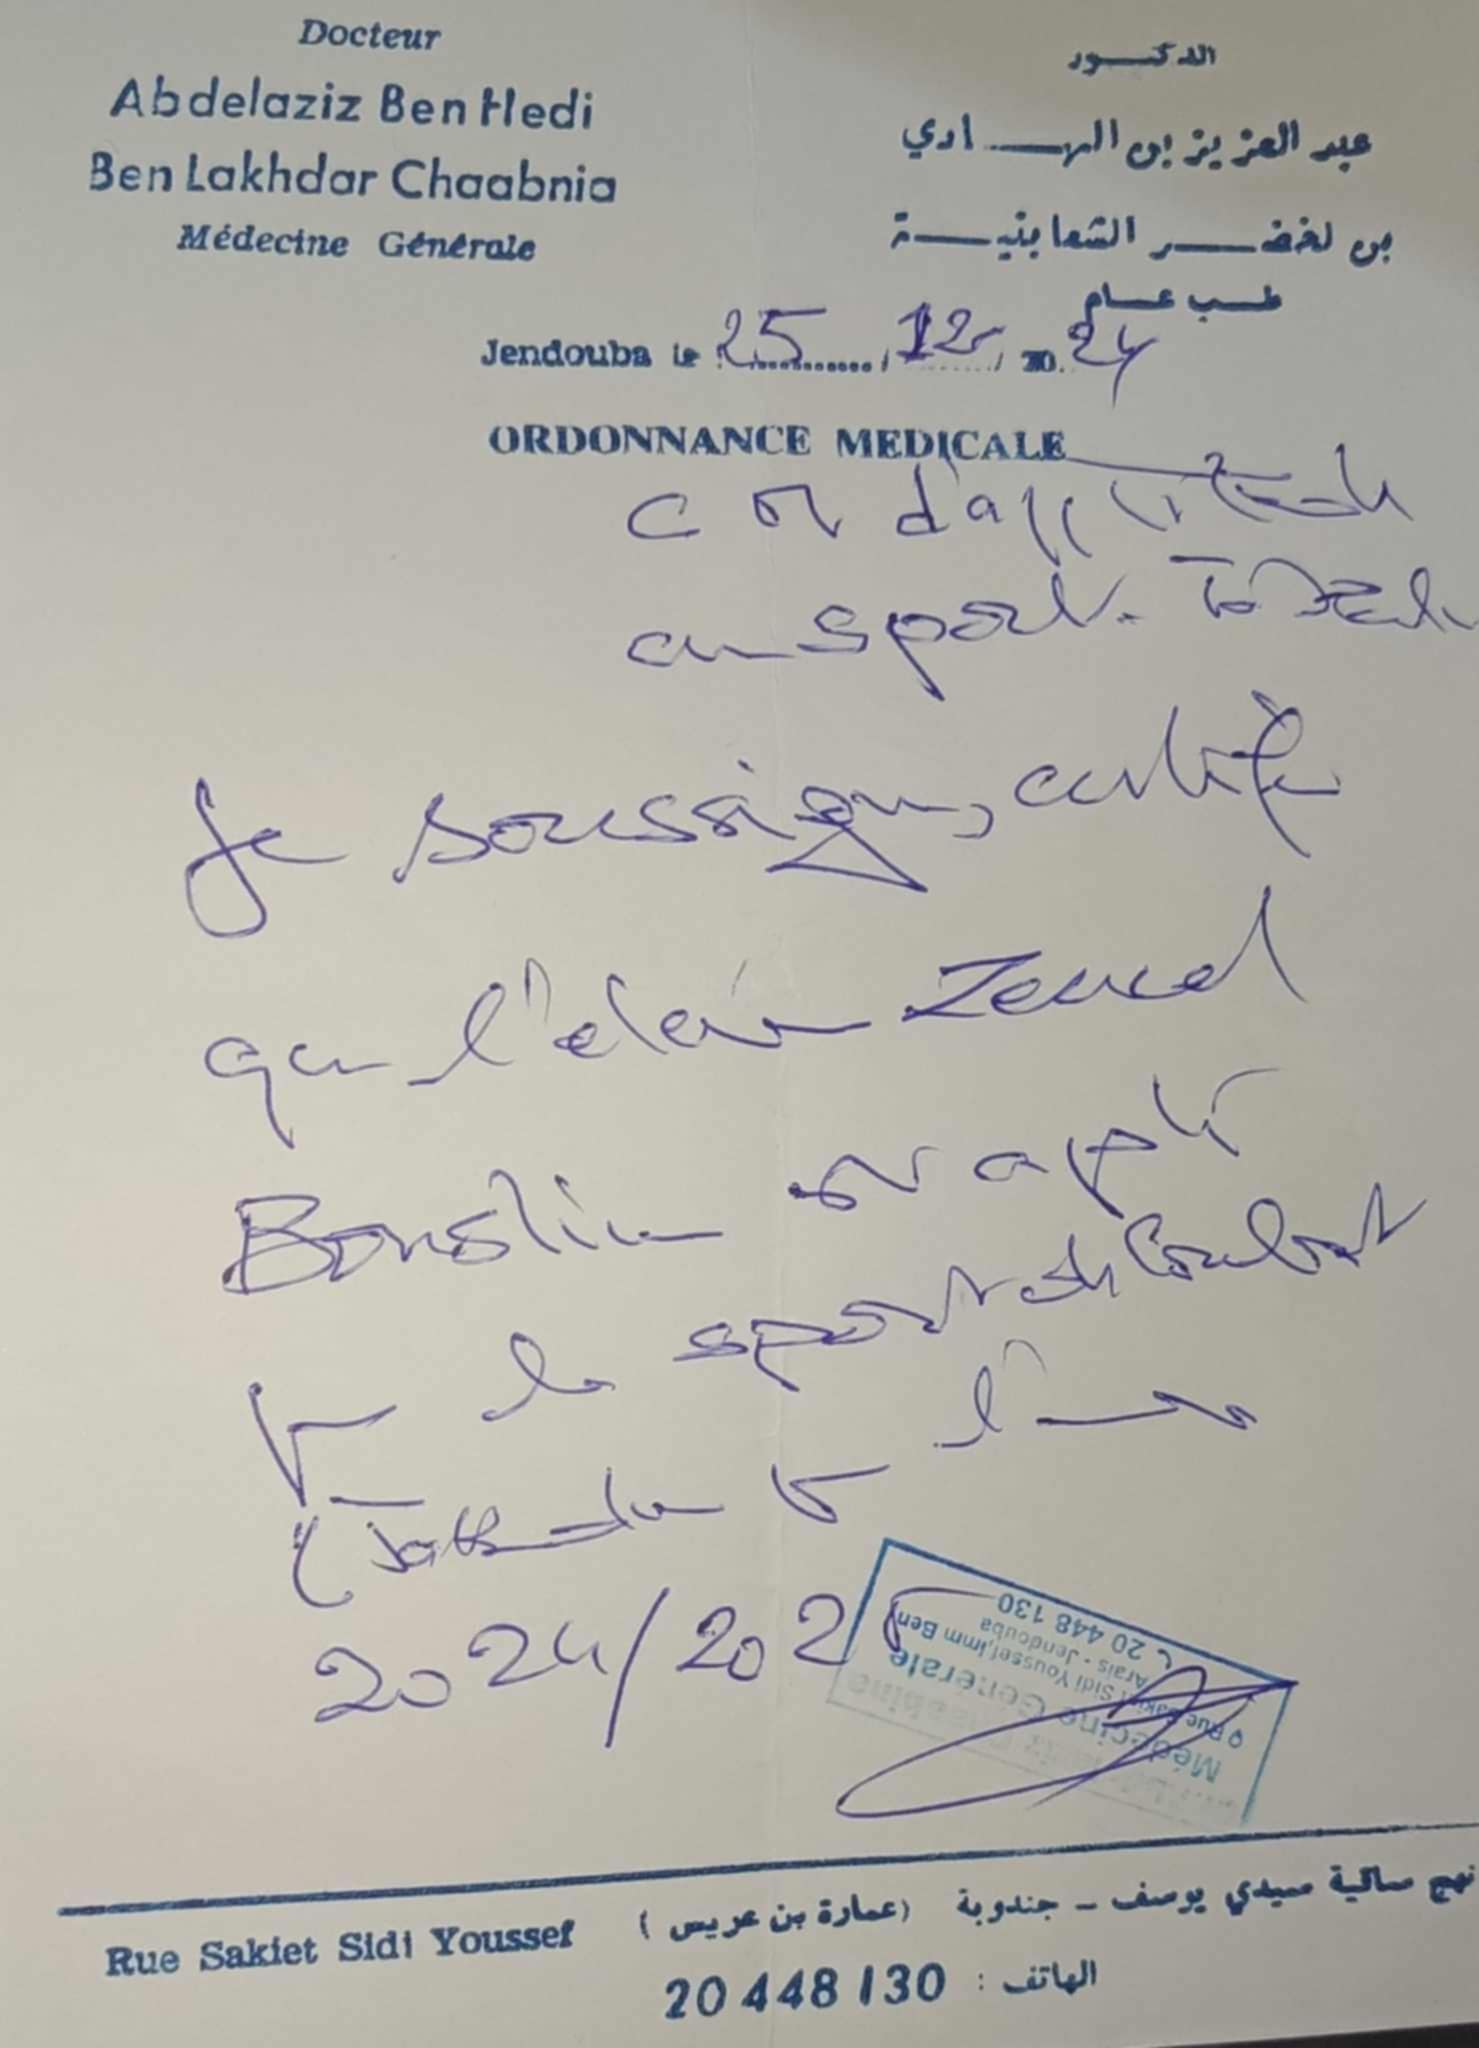 Docteur
Abdelaziz Ben Hedi
Ben Lakhdar Chaabnia
Médecine Générale
الدكتور
عبد العزيز بن الهادي
بن لخضر الشعابنية
طب عام
Jendouba le 25 / 12 / 2024
ORDONNANCE MEDICALE
d'aptitude
au sport.
Je soussigné, certifie
que l'élève
est apte
pour le sport de Combat
l'année
2024/2025
Médecine Générale
Rue Sakiet Sidi Youssef, Imm Ben
Arais - Jendouba
20 448 130
نهج ساقية سيدي يوسف - جندوبة (عمارة بن عريس)
Rue Sakiet Sidi Youssef
الهاتف : 20 448 130